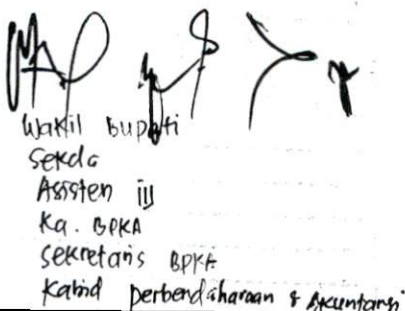 Wakil Bupati
Sekda
Asisten III
Ka. BPKA
Sekretaris BPKA
Kabid perbendaharaan & Akuntansi